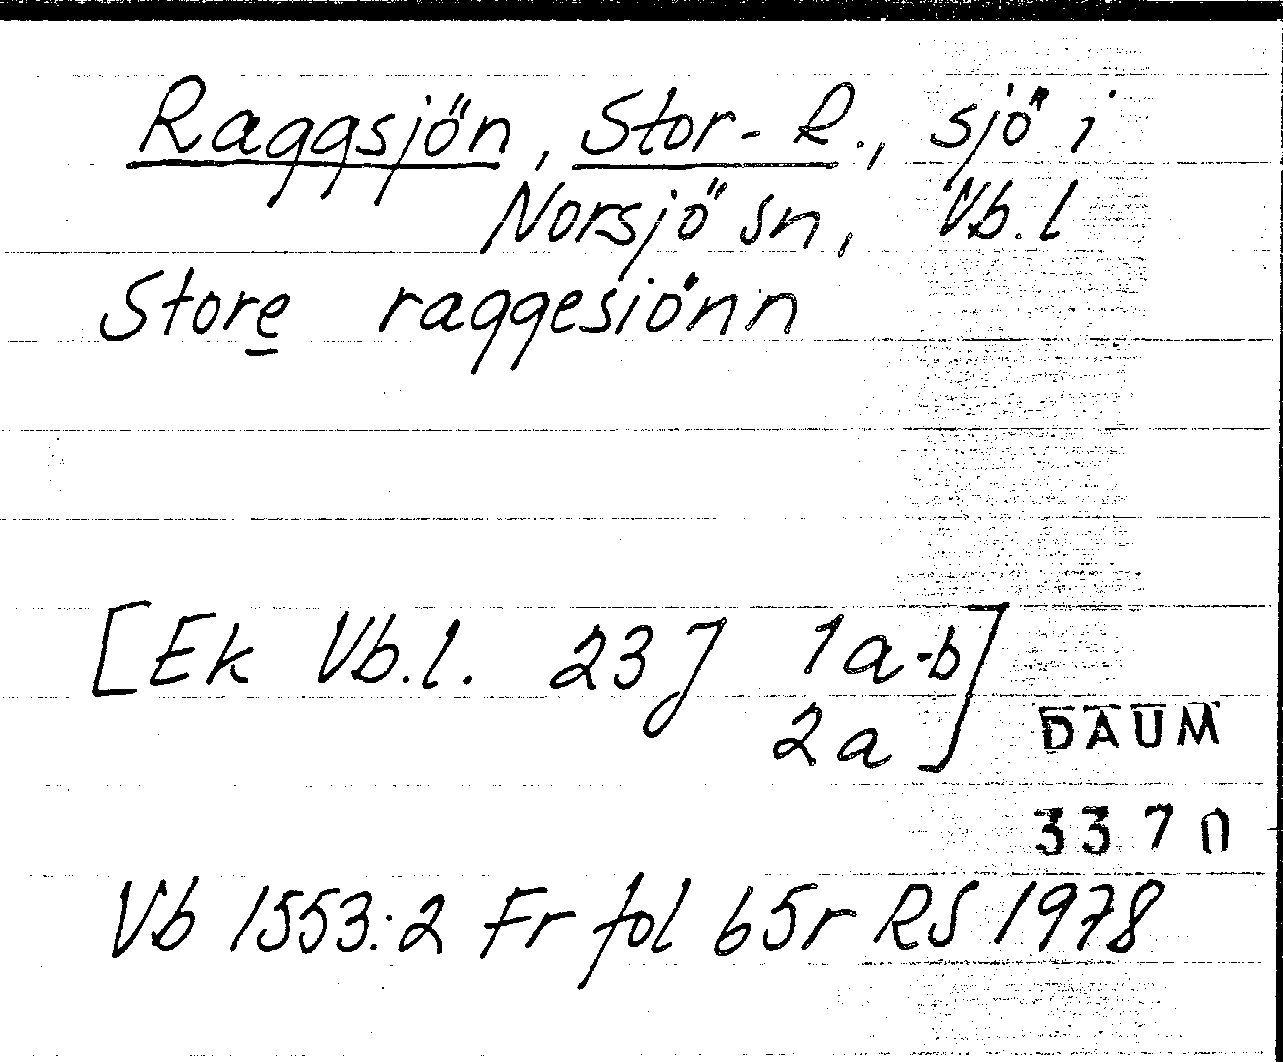 Raggsjön, Stor-R., sjö i
Norsjö sn, Vb.l
Store raggesiönn
[Ek Vb.l. 23J 1a-b
2a]
DAUM
3370
Vb 1553:2 Fr fol 65r RS 1978